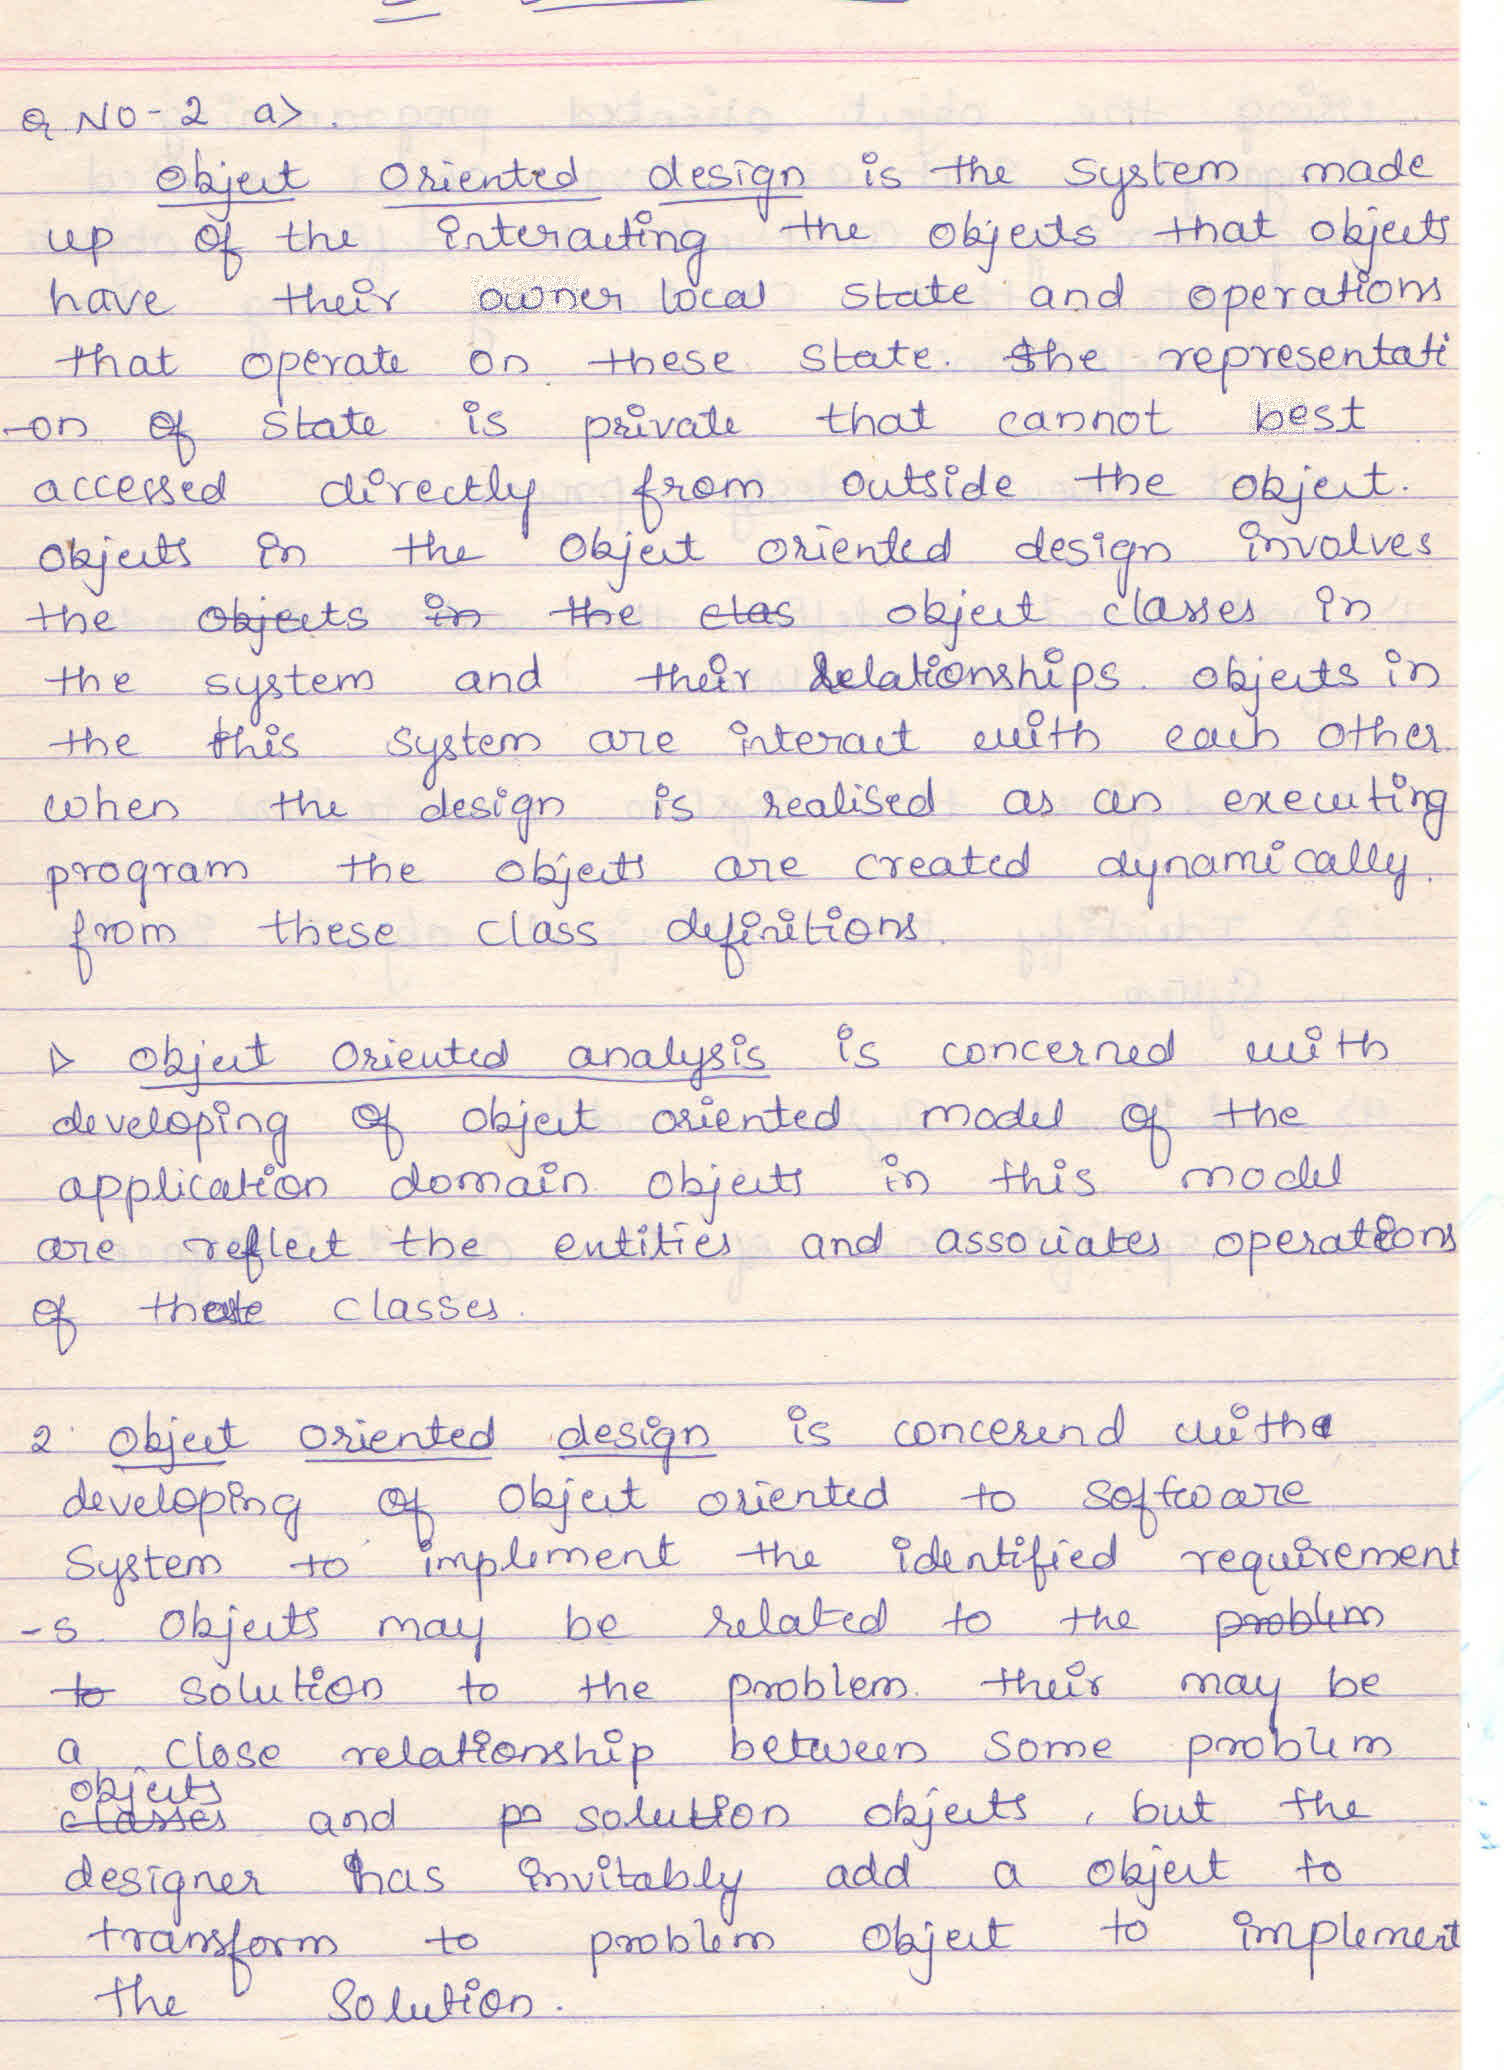 Q NO-2 a>.
Object Oriented design is the system made
up of the interacting the objects that objects
have their owner local state and operations
that operate on these state. The representati
-on of state is private that cannot best
accessed directly from outside the object.
Objects in the object oriented design involves
the objects in the clas object classes in
the system and their relationships. objects in
the this system are interact with each other.
when the design is realised as an executing
program the objects are created dynamically.
from these class definitions.
object oriented analysis is concerned with
developing of object oriented model of the
application domain. objects in this model
are reflect the entities and associates operations
of these classes.
2. object oriented design is concerend with
developing of object oriented to software
System to implement the identified requirement
-s. Objects may be related to the problem
to solution to the problem. their may be
a close relationship between some problem
objects
classes and po solution objects, but the
designer has invitably add a object to
transform to problem object to implement
the solution.